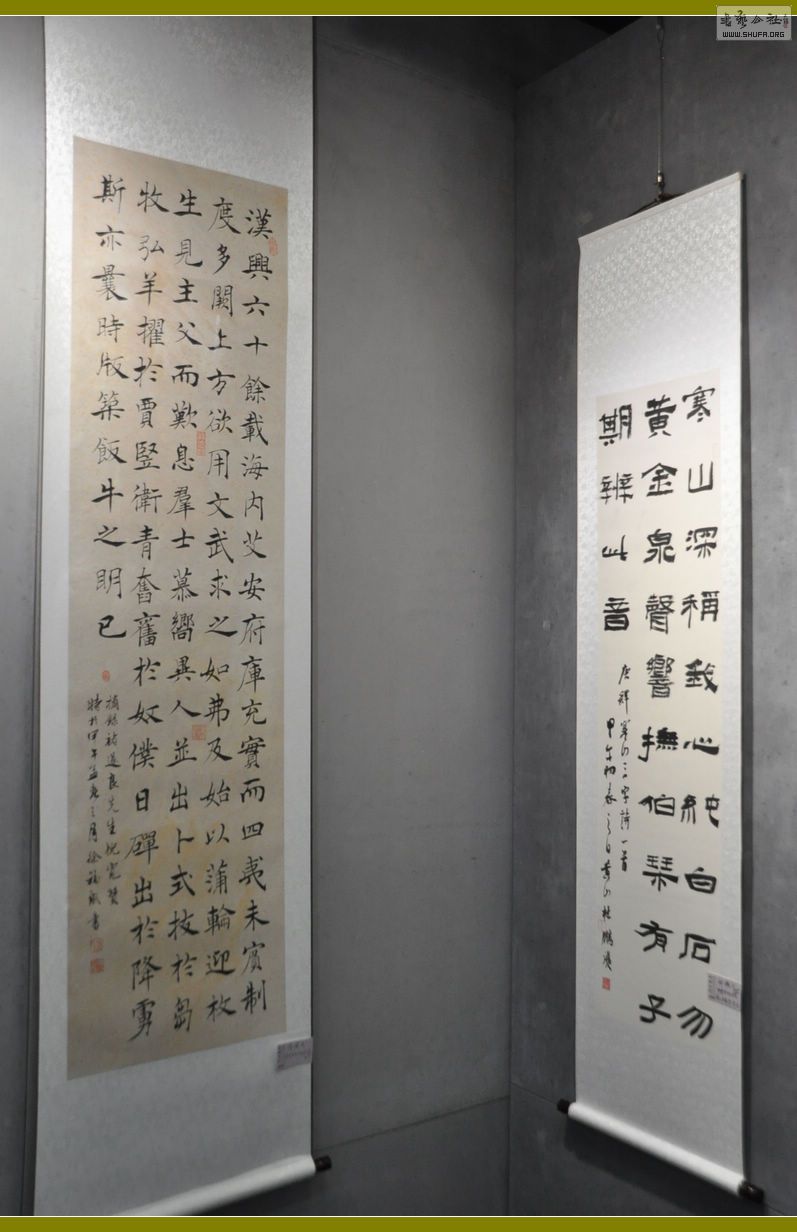 書藝公社
WWW.SHUFA.ORG
寒山深稱我心純白石勿
黄金泉聲響撫伯琴有子
期辨此音
唐釋寒山三字詩一首
甲午初春之日黄山杜鵬
漢興六十餘載海内艾安府庫充實而四夷未賓制
度多闕上方欲用文武求之如弗及始以蒲輪迎枚
生見主父而歎息羣士慕嚮異人並出卜式技於芻
牧弘羊擢於賈竪衛青奮舊於奴僕日磾出於降虜
斯亦曩時版築飯牛之明已
摘錄褚遂良先生倪寬贊
時於甲午孟春之月徐福書